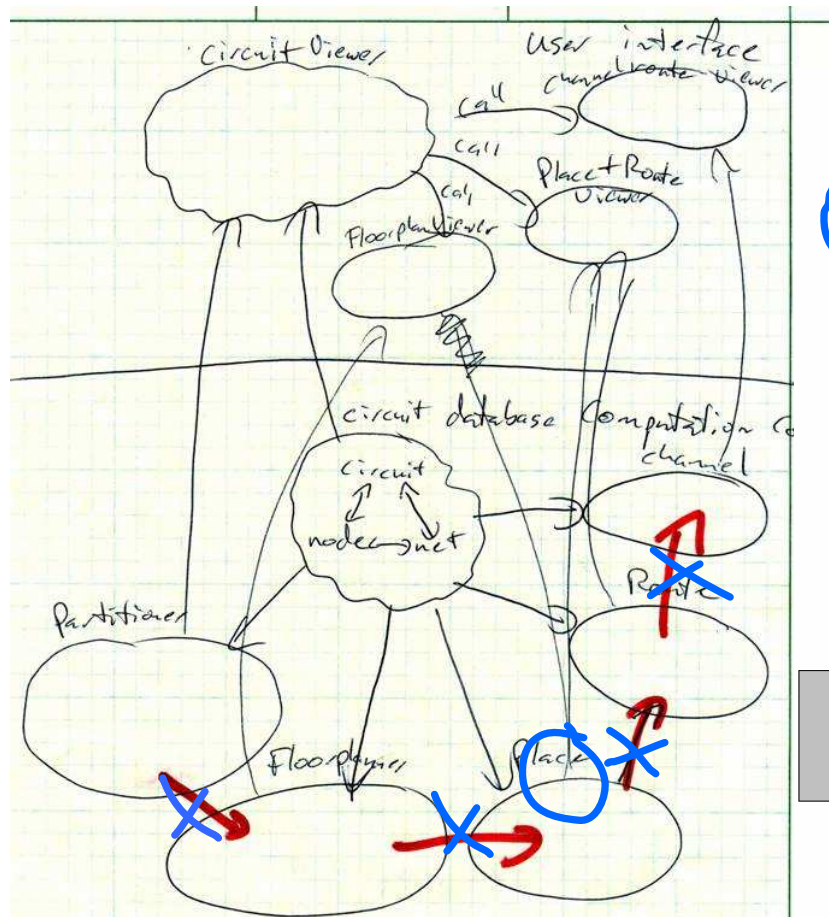 Circuit Viewer
User interface
channel route viewer
call
call
call
Place + Route
Viewer
Floorplan Viewer
circuit database
Computation Co
channel
circuit
node net
Route
Partitioner
Floorplanner
Place